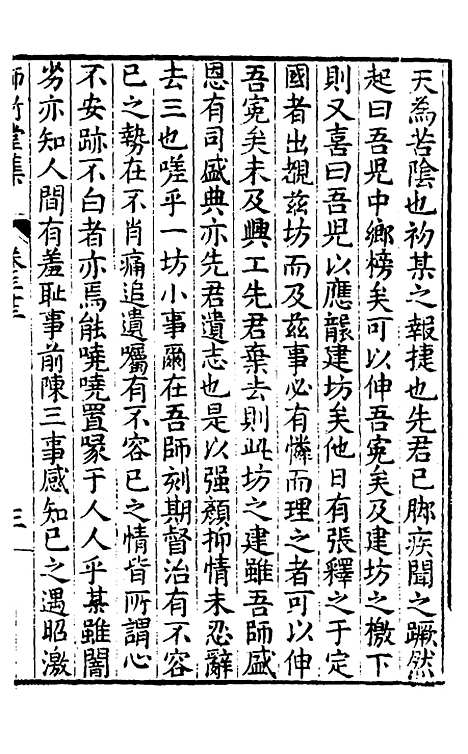 天為苦陰也初某之報捷也先君已腳疾聞之蹶然
起曰吾兒中鄉榜矣可以伸吾寃矣及建坊之檄下
則又喜曰吾兒以應龍建坊矣他日有張釋之于定
國者出覩茲坊而及茲事必有憐而理之者可以伸
吾寃矣未及興工先君棄去則此坊之建雖吾師盛
恩有司盛典亦先君遺志也是以强顏抑情未忍辭
去三也嗟乎一坊小事爾在吾師刻期督治有不容
已之勢在不肖痛追遺囑有不容已之情皆所謂心
不安跡不白者亦焉能嘵嘵置喙于人人乎某雖闇
劣亦知人間有羞耻事前陳三事感知已之遇昭激
集
卷三
三